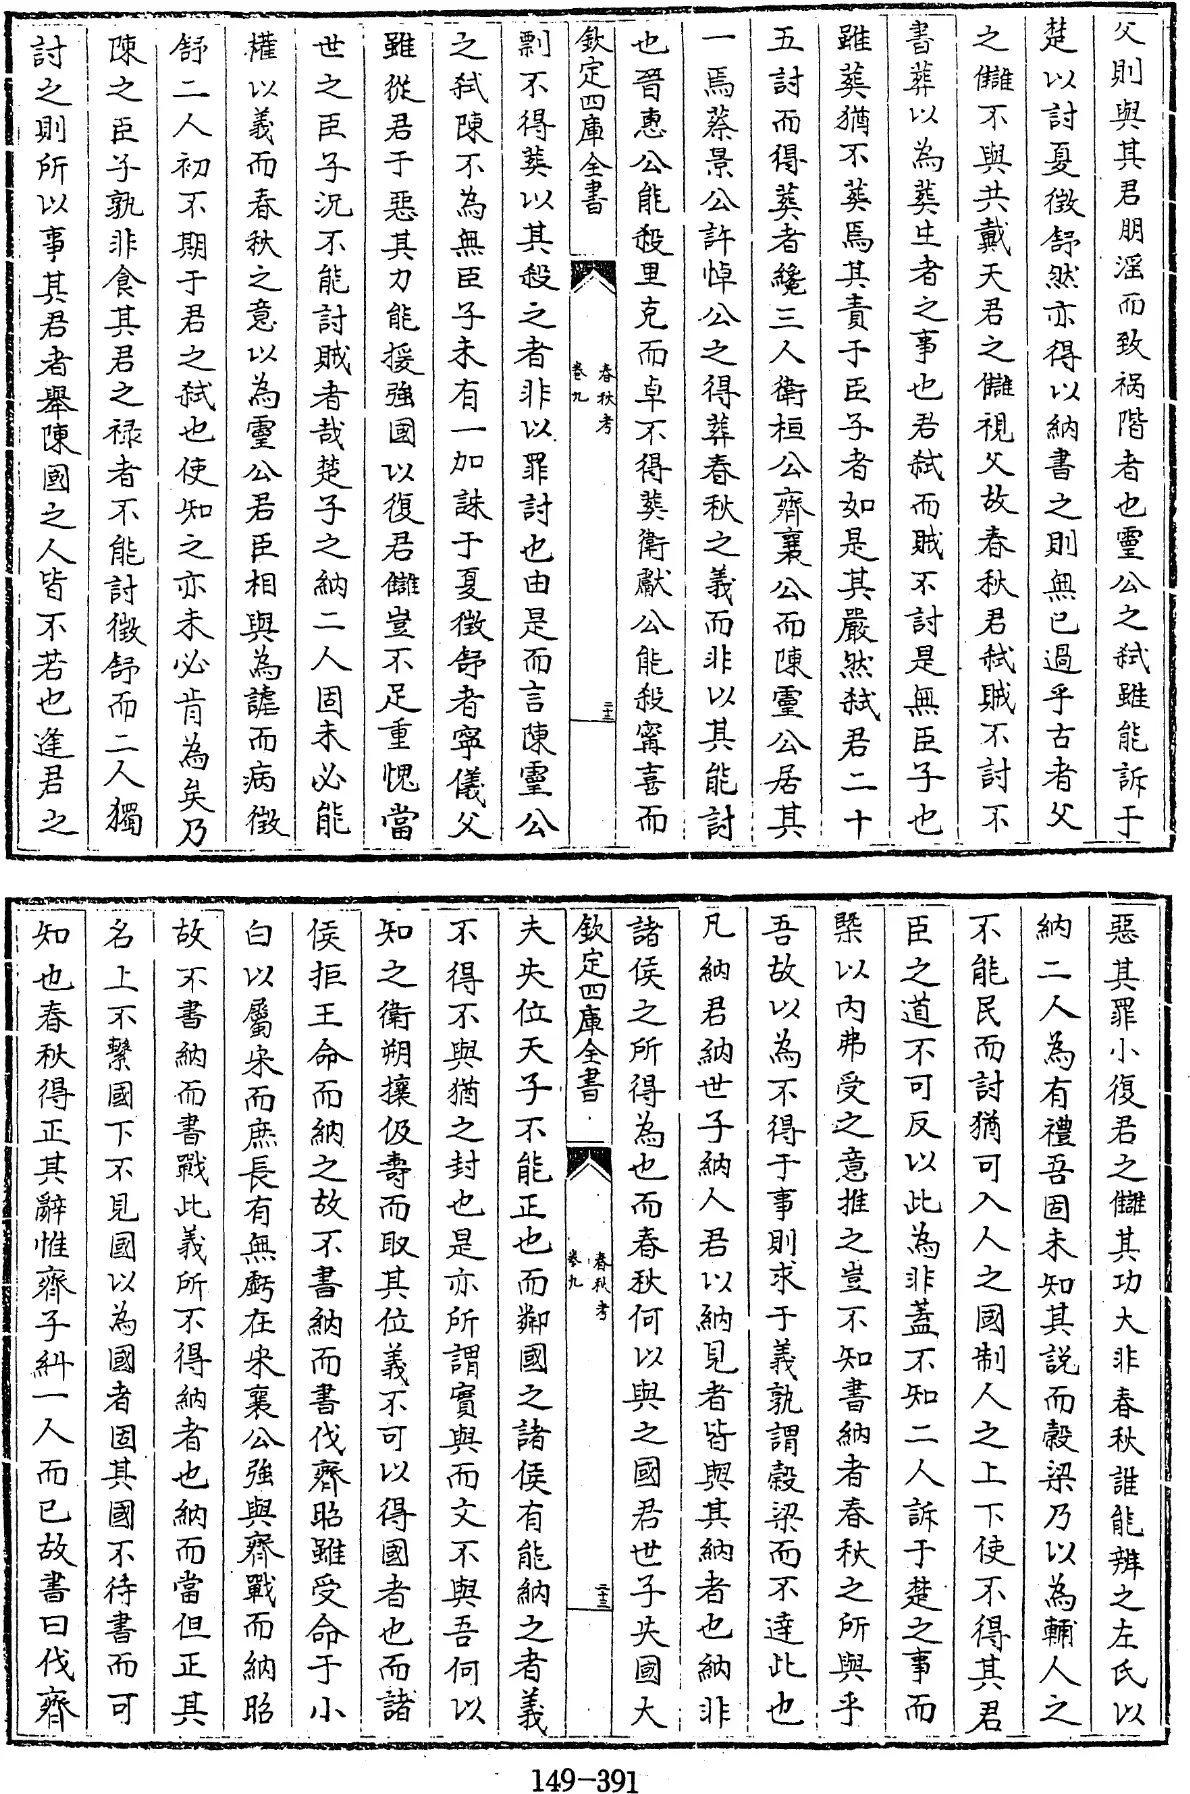 父則與其君朋淫而致禍階者也靈公之弒雖能訴于
楚以討夏徵舒然亦得以納書之則無已過乎古者父
之讎不與共戴天君之讎視父故春秋君弒賊不討不
書葬以為葬生者之事也君弒而賊不討是無臣子也
雖葬猶不葬焉其責于臣子者如是其嚴然弒君二十
五討而得葬者纔三人衛桓公齊襄公而陳靈公居其
一焉蔡景公許悼公之得葬春秋之義而非以其能討
也晉惠公能殺里克而卓不得葬衛獻公能殺甯喜而
欽定四庫全書
春秋考
卷九
二十三
剽不得葬以其殺之者非以罪討也由是而言陳靈公
之弒陳不為無臣子未有一加誅于夏徵舒者寧儀父
雖從君于惡其力能援強國以復君讎豈不足重愧當
世之臣子況不能討賊者哉楚子之納二人固未必能
權以義而春秋之意以為靈公君臣相與為謔而病徵
舒二人初不期于君之弒也使知之亦未必肯為矣乃
陳之臣子孰非食其君之祿者不能討徵舒而二人獨
討之則所以事其君者舉陳國之人皆不若也逢君之
惡其罪小復君之讎其功大非春秋誰能辨之左氏以
納二人為有禮吾固未知其説而穀梁乃以為輔人之
不能民而討猶可入人之國制人之上下使不得其君
臣之道不可反以此為非蓋不知二人訴于楚之事而
槩以内弗受之意推之豈不知書納者春秋之所與乎
吾故以為不得于事則求于義孰謂穀梁而不達此也
凡納君納世子納人君以納見者皆與其納者也納非
諸侯之所得為也而春秋何以與之國君世子失國大
欽定四庫全書
春秋考
卷九
二十三
夫失位天子不能正也而鄰國之諸侯有能納之者義
不得不與猶之封也是亦所謂實與而文不與吾何以
知之衛朔攘伋壽而取其位義不可以得國者也而諸
侯拒王命而納之故不書納而書伐齊昭雖受命于小
白以屬宋而庶長有無虧在宋襄公強與齊戰而納昭
故不書納而書戰此義所不得納者也納而當但正其
名上不繫國下不見國以為國者固其國不待書而可
知也春秋得正其辭惟齊子糾一人而已故書曰伐齊
149-391